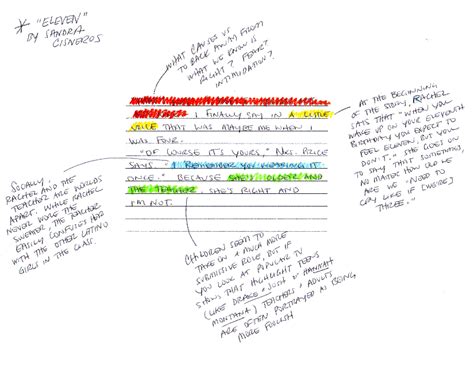 * "ELEVEN"
BY SANDRA
CISNEROS
WHAT CAUSES US
TO BACK AWAY FROM
WHAT WE KNOW IS
RIGHT? FEAR?
INTIMIDATION?
I FINALLY SAY IN A LITTLE
VOICE THAT WAS MAYBE ME WHEN I
WAS FOUR.
"OF COURSE IT'S YOURS," MRS. PRICE
SAYS. "I REMEMBER YOU WEARING IT
ONCE." BECAUSE SHE'S OLDER AND
THE TEACHER, SHE'S RIGHT AND
I'M NOT.
AT THE BEGINNING
OF THE STORY, RACHEL
SAYS THAT "WHEN YOU
WAKE UP ON YOUR ELEVENTH
BIRTHDAY YOU EXPECT TO
FEEL ELEVEN, BUT YOU
DON'T." SHE GOES ON
TO SAY THAT SOMETIMES,
NO MATTER HOW OLD WE
ARE WE "NEED TO
CRY LIKE IF [WE'RE]
THREE."
SOCIALLY,
RACHEL AND THE
TEACHER ARE WORLDS
APART. WHILE RACHEL
NEVER WORE THE
SWEATER, THE TEACHER
EASILY CONFUSES HER
WITH THE OTHER LATINO
GIRLS IN THE CLASS.
CHILDREN SEEM TO
TAKE ON A MUCH MORE
SUBMISSIVE ROLE, BUT IF
YOU LOOK AT POPULAR TV
SHOWS THAT HIGHLIGHT TEENS
(LIKE DRAKE & JOSH OR HANNAH
MONTANA) TEACHERS & ADULTS
ARE OFTEN PORTRAYED AS BEING
MORE FOOLISH